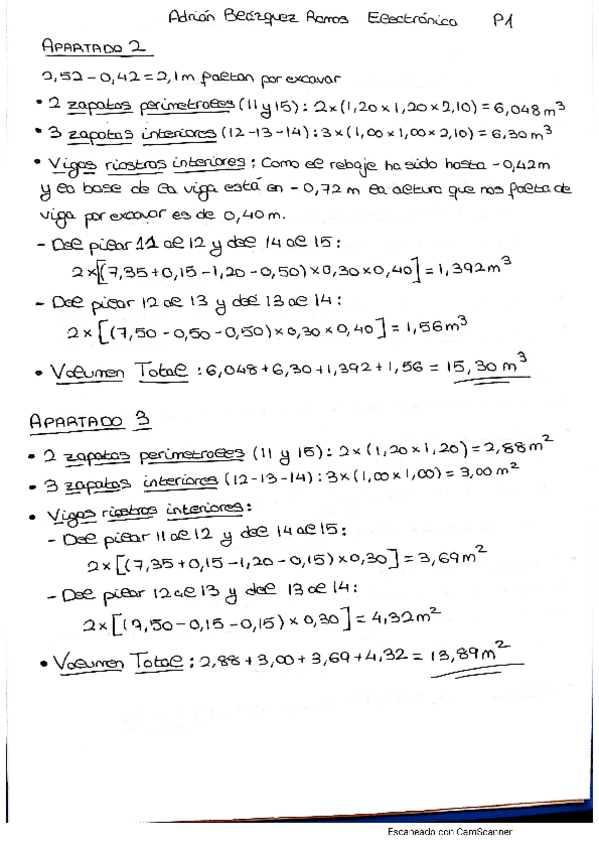 Adrián Blázquez Ramos Electrónica P1
APARTADO 2
2,52 - 0,42 = 2,1 m faltan por excavar
• 2 zapatas perimetrales (11 y 15): 2x(1,20 x 1,20 x 2,10) = 6,048 m³
• 3 zapatas interiores (12-13-14): 3x(1,00 x 1,00 x 2,10) = 6,30 m³
• Vigas riostras interiores: Como el rebaje ha sido hasta -0,42m
y la base de la viga está en -0,72 m la altura que nos falta de
viga por excavar es de 0,40 m.
- Del pilar 11 al 12 y del 14 al 15:
2x[(7,35 + 0,15 - 1,20 - 0,50) x 0,30 x 0,40] = 1,392 m³
- Del pilar 12 al 13 y del 13 al 14:
2x[(7,50 - 0,50 - 0,50) x 0,30 x 0,40] = 1,56 m³
• Volumen Total: 6,048 + 6,30 + 1,392 + 1,56 = 15,30 m³
APARTADO 3
• 2 zapatas perimetrales (11 y 15): 2x(1,20 x 1,20) = 2,88 m²
• 3 zapatas interiores (12-13-14): 3x(1,00 x 1,00) = 3,00 m²
• Vigas riostras interiores:
- Del pilar 11 al 12 y del 14 al 15:
2x[(7,35 + 0,15 - 1,20 - 0,15) x 0,30] = 3,69 m²
- Del pilar 12 al 13 y del 13 al 14:
2x[(7,50 - 0,15 - 0,15) x 0,30] = 4,32 m²
• Volumen Total: 2,88 + 3,00 + 3,69 + 4,32 = 13,89 m²
Escaneado con CamScanner